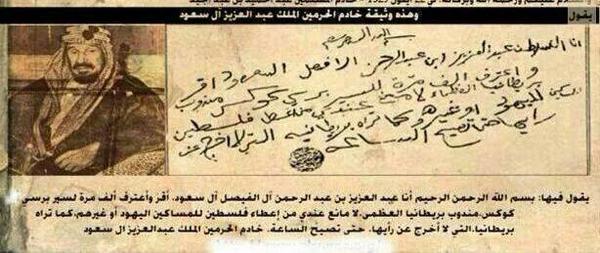 يقول
وهذه وثيقة خادم الحرمين الملك عبد العزيز آل سعود
بسم الله الرحمن الرحيم
انا السلطان عبد العزيز ابن عبد الرحمن الافصل السعود اقر
واعترف الف مرة للسير برسي كوكس مندوب
بريطانيا العظمى لا مانع عندي من اعطاء فلسطين
للمساكين اليهود او غيرهم وكما تراه بريطانيه التي لا اخرج عن
رايها حتى تصيح الساعه
يقول فيها: بسم الله الرحمن الرحيم أنا عبد العزيز بن عبد الرحمن آل الفيصل آل سعود، أقر وأعترف ألف مرة لسير برسي
كوكس،مندوب بريطانيا العظمى،لا مانع عندي من إعطاء فلسطين للمساكين اليهود أو غيرهم،كما تراه
بريطانيا،التي لا أخرج عن رأيها، حتى تصيح الساعة. خادم الحرمين الملك عبدالعزيز آل سعود